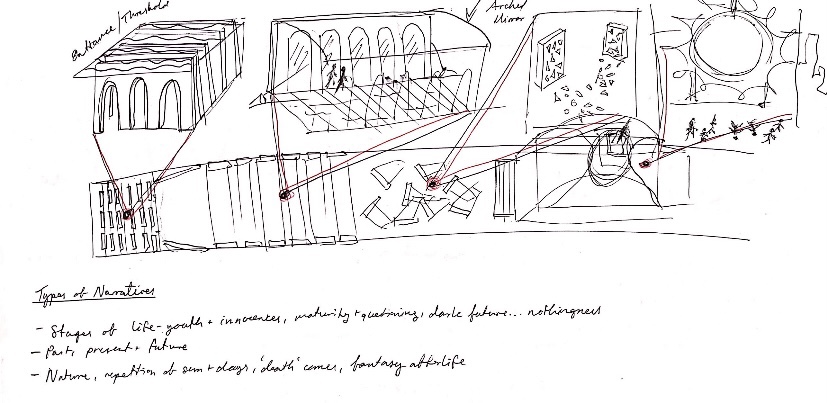 Entrance/Threshold
Arched
Mirror
Types of Narratives
- Stages of life - youth + innocence, maturity + questioning, dark future... nothingness
- Past, present + future
- Nature, repetition of sun + days, 'death' comes, fantasy afterlife